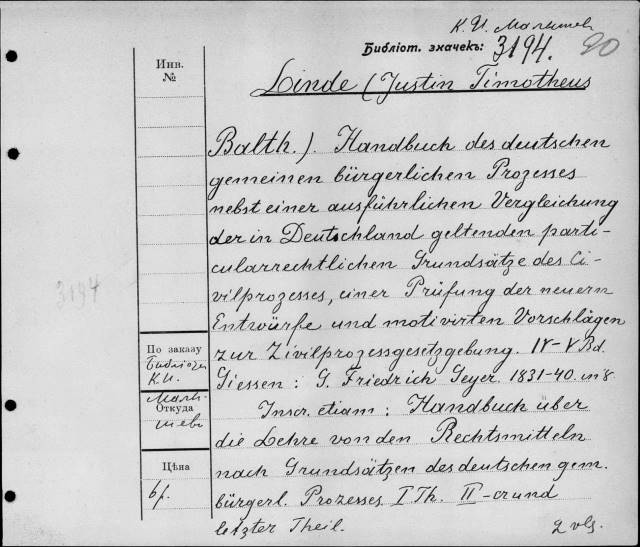 К. И. Малышев
Библіот. значекъ: 3194. 20
Инв.
№
Linde (Justin Timotheus
Balth.). Handbuch des deutschen
gemeinen bürgerlichen Prozesses
nebst einer ausführlichen Vergleichung
der in Deutschland geltenden parti-
cularrechtlichen Grundsätze des Ci-
vilprozesses, einer Prüfung der neuern
Entwürfe und motivirten Vorschlägen
zur Zivilprozessgesetzgebung. IV-V Bd.
Giessen: G. Friedrich Geyer. 1831-40. in 8.
Inscr. etiam: Handbuch über
die Lehre von den Rechtsmitteln
nach Grundsätzen des deutschen gem.
bürgerl. Prozesses I Th. II-er und
letzter Theil. 2 vls.
3194
По заказу
К. И.
Откуда
Цѣна
6 р.